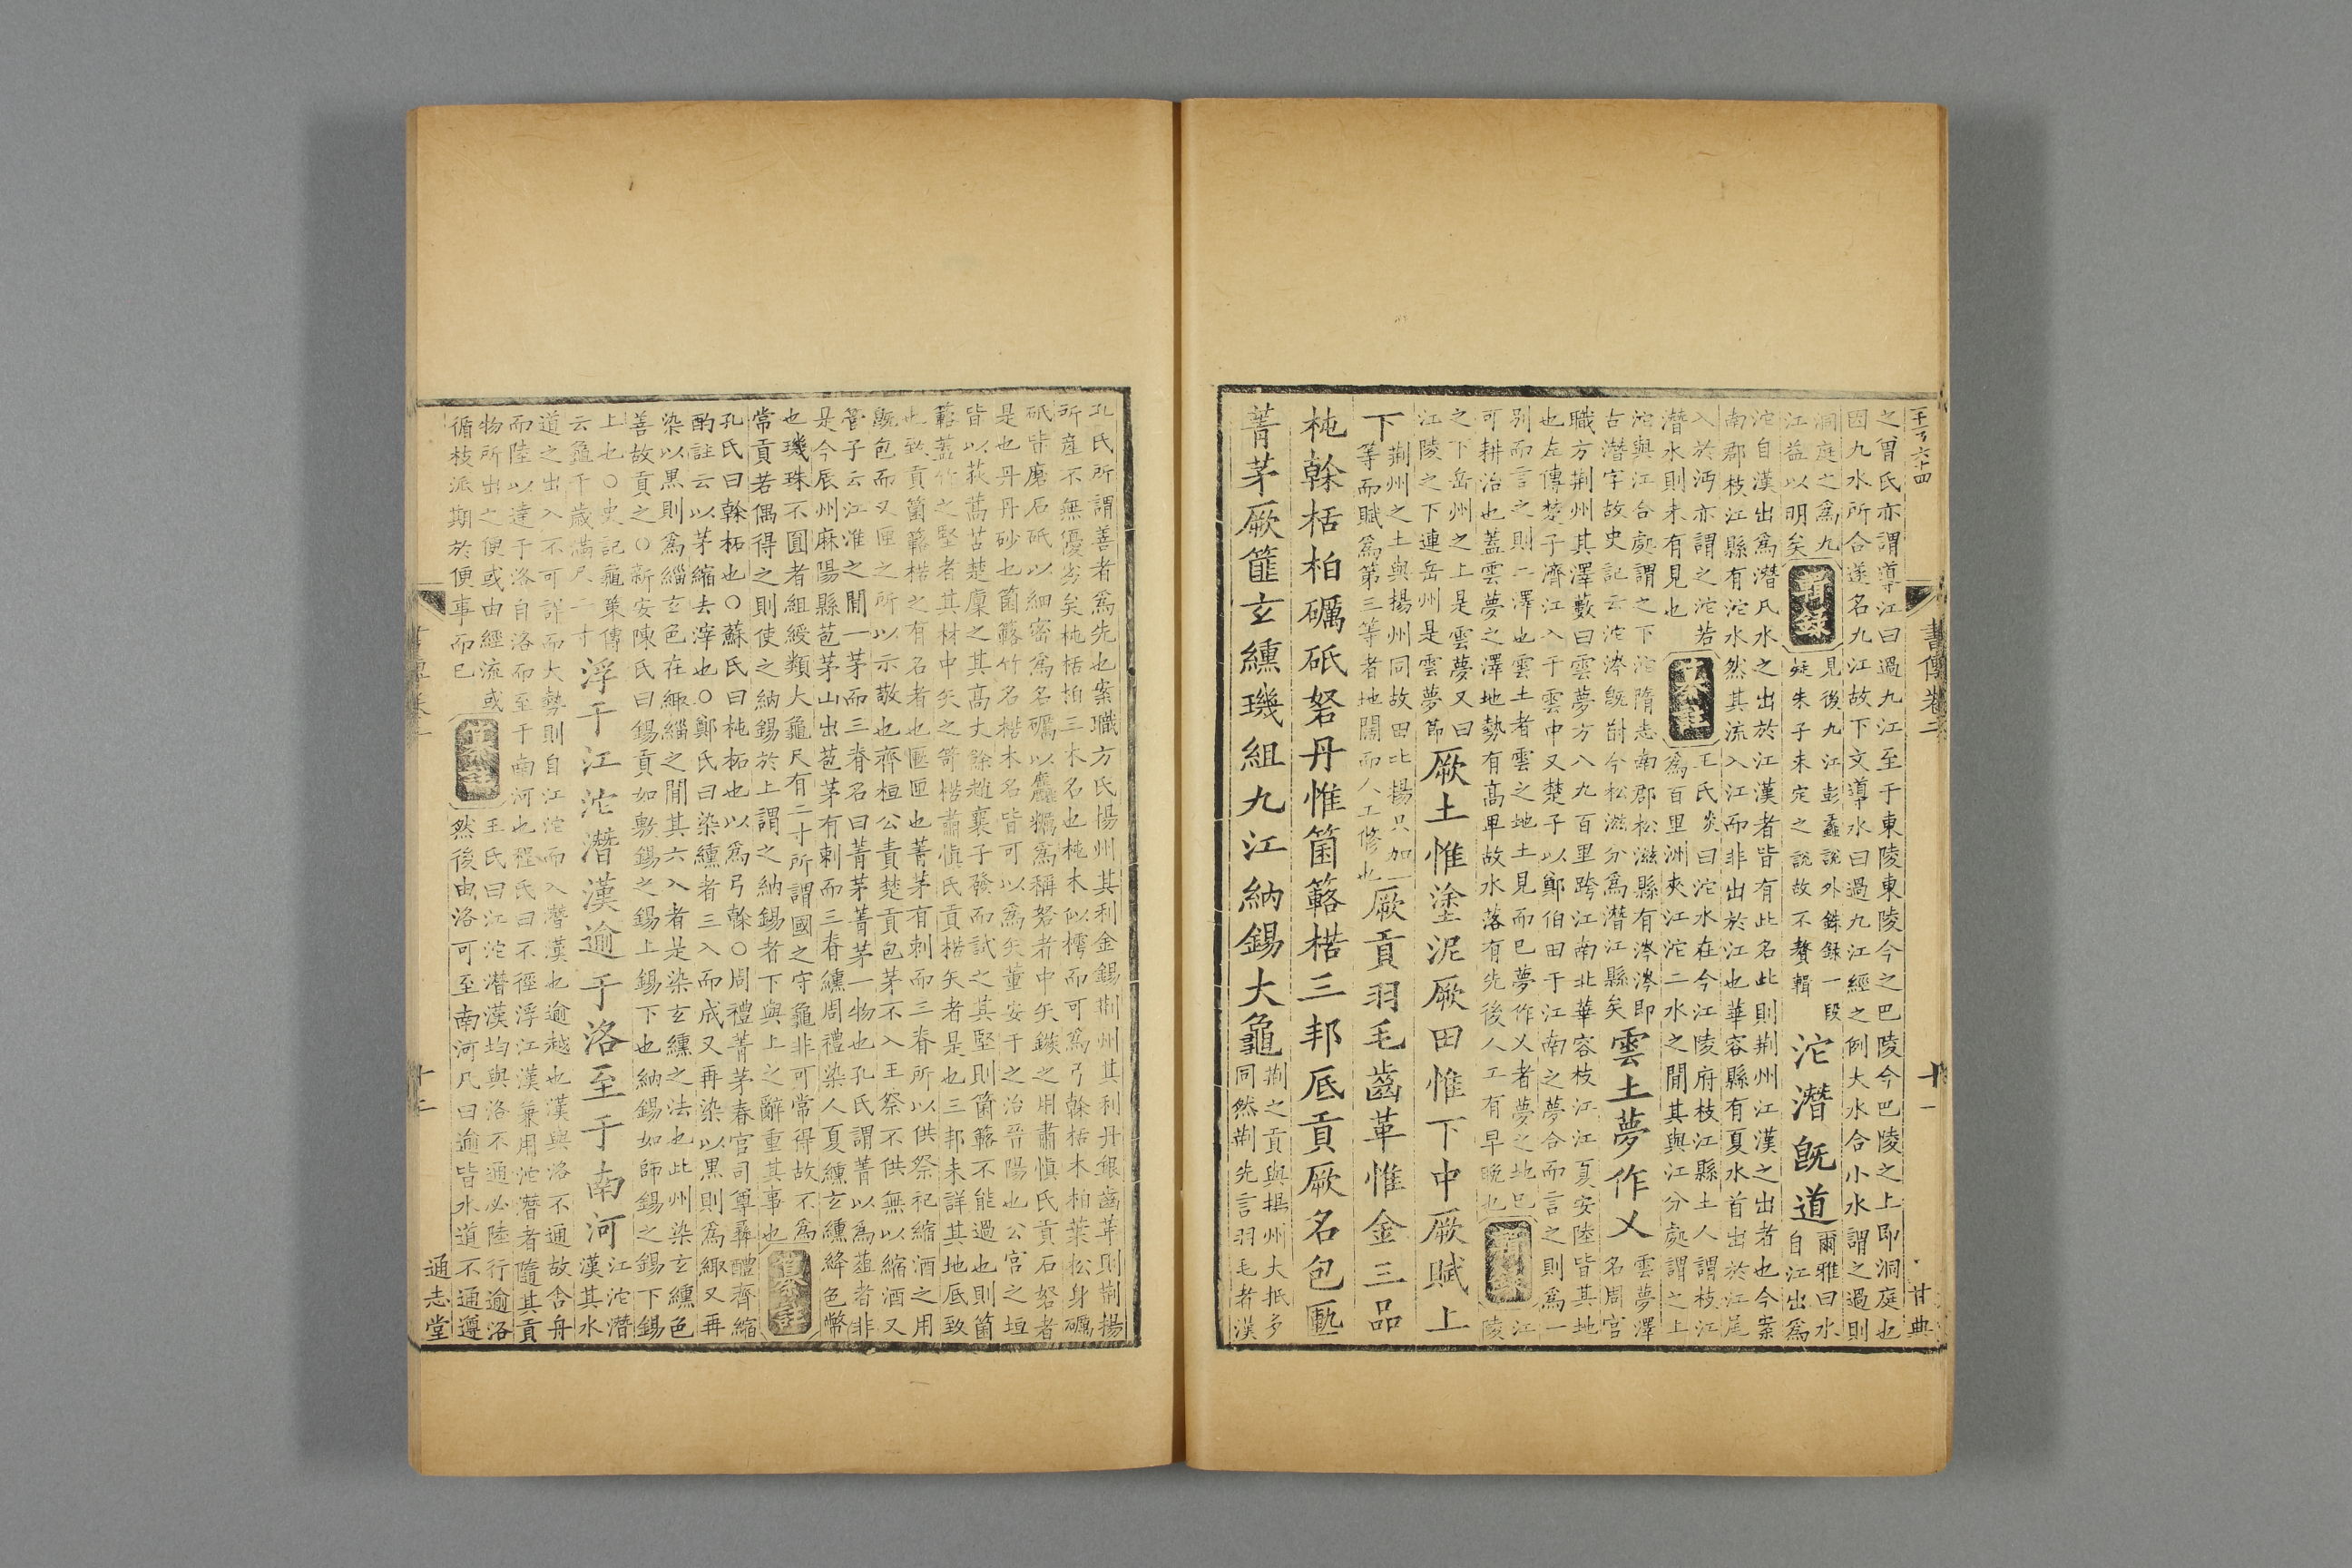 書傳卷二 十一 甘典
之曾氏亦謂導江曰過九江至于東陵東陵今之巴陵今巴陵之上即洞庭也
因九水所合遂名九江故下文導水曰過九江經之例大水合小水謂之過則
洞庭之爲九
江益以明矣
見後九江彭蠡說外錄錄一段
疑朱子未定之說故不贅輯
沱潛旣道
爾雅曰水
自江出爲
沱自漢出爲潛凡水之出於江漢者皆有此名此則荆州江漢之出者也今案
南郡枝江縣有沱水然其流入江而非出於江也華容縣有夏水首出於江尾
入於沔亦謂之沱若
潛水則未有見也
纂註
王氏炎曰沱水在今江陵府枝江縣土人謂枝江
爲百里洲夾江沱二水之間其與江分處謂之上
沱與江合處謂之下沱隋志南郡松滋縣有涔涔即
古潛字故史記云沱涔旣道今松滋分爲潛江縣矣
雲土夢作乂
雲夢澤
名周官
職方荆州其澤藪曰雲夢方八九百里跨江南北華容枝江江夏安陸皆其地
也左傳楚子濟江入于雲中又楚子以鄭伯田于江南之夢合而言之則爲一
別而言之則二澤也雲土者雲之地土見而已夢作乂者夢之地已
可耕治也蓋雲夢之澤地勢有高卑故水落有先後人工有早晚也
江
陵
之下岳州之上是雲夢又曰
江陵之下連岳州是雲夢節
厥土惟塗泥厥田惟下中厥賦上
下
荆州之土與揚州同故田比揚只加一
等而賦爲第三等者地闊而人工修也
厥貢羽毛齒革惟金三品
杶榦栝柏礪砥砮丹惟箘簵楛三邦厎貢厥名包匭
菁茅厥篚玄纁璣組九江納錫大龜
荆之貢與揚州大抵多
同然荆先言羽毛者漢
孔氏所謂善者爲先也案職方氏揚州其利金錫荆州其利丹銀齒革則荆揚
所產不無優劣矣杶栝柏三木名也杶木似樗而可爲弓榦栝木柏葉松身礪
砥皆磨石砥以細密爲名礪以麤糲爲稱砮者中矢鏃之用肅愼氏貢石砮者
是也丹丹砂也箘簵竹名楛木名皆可以爲矢董安于之治晉陽也公宮之垣
皆以荻蒿苫楚廩之其高丈餘趙襄子發而試之其堅則箘簵不能過也則箘
簵蓋竹之堅者其材中矢之笴楛肅愼氏貢楛矢者是也三邦未詳其地厎致
也致貢箘簵楛之有名者也匭匣也菁茅有刺而三脊所以供祭祀縮酒之用
旣包而又匣之所以示敬也齊桓公責楚貢包茅不入王祭不供無以縮酒又
管子云江淮之間一茅而三脊名曰菁茅菁茅一物也孔氏謂菁以爲葅者非
是今辰州麻陽縣苞茅山出苞茅有刺而三脊纁周禮染人夏纁玄纁絳色幣
也璣珠不圓者組綬類大龜尺有二寸所謂國之守龜非可常得故不爲
常貢若偶得之則使之納錫於上謂之納錫者下與上之辭重其事也
纂註
孔氏曰榦柘也○蘇氏曰杶柘也以爲弓榦○周禮菁茅春官司尊彝醴齊縮
酌註云以茅縮去滓也○鄭氏曰染纁者三入而成又再染以黑則爲緅又再
染以黑則爲緇玄色在緅緇之間其六入者是染玄纁之法也此州染玄纁色
善故貢之○新安陳氏曰錫貢如敷錫之錫上錫下也納錫如師錫之錫下錫
上也○史記龜策傳
云龜千歲滿尺二寸
浮于江沱潛漢逾于洛至于南河
江沱潛
漢其水
道之出入不可詳而大勢則自江沱而入潛漢也逾越也漢與洛不通故舍舟
而陸以達于洛自洛而至于南河也程氏曰不徑浮江漢兼用沱潛者隨其貢
物所出之便或由經流或
循枝派期於便事而已
纂註
王氏曰江沱潛漢均與洛不通必陸行逾洛
然後由洛可至南河凡曰逾皆水道不通遵
通志堂